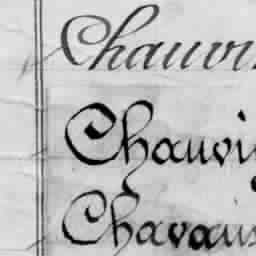 Chauvi
Chauvi
Chavan